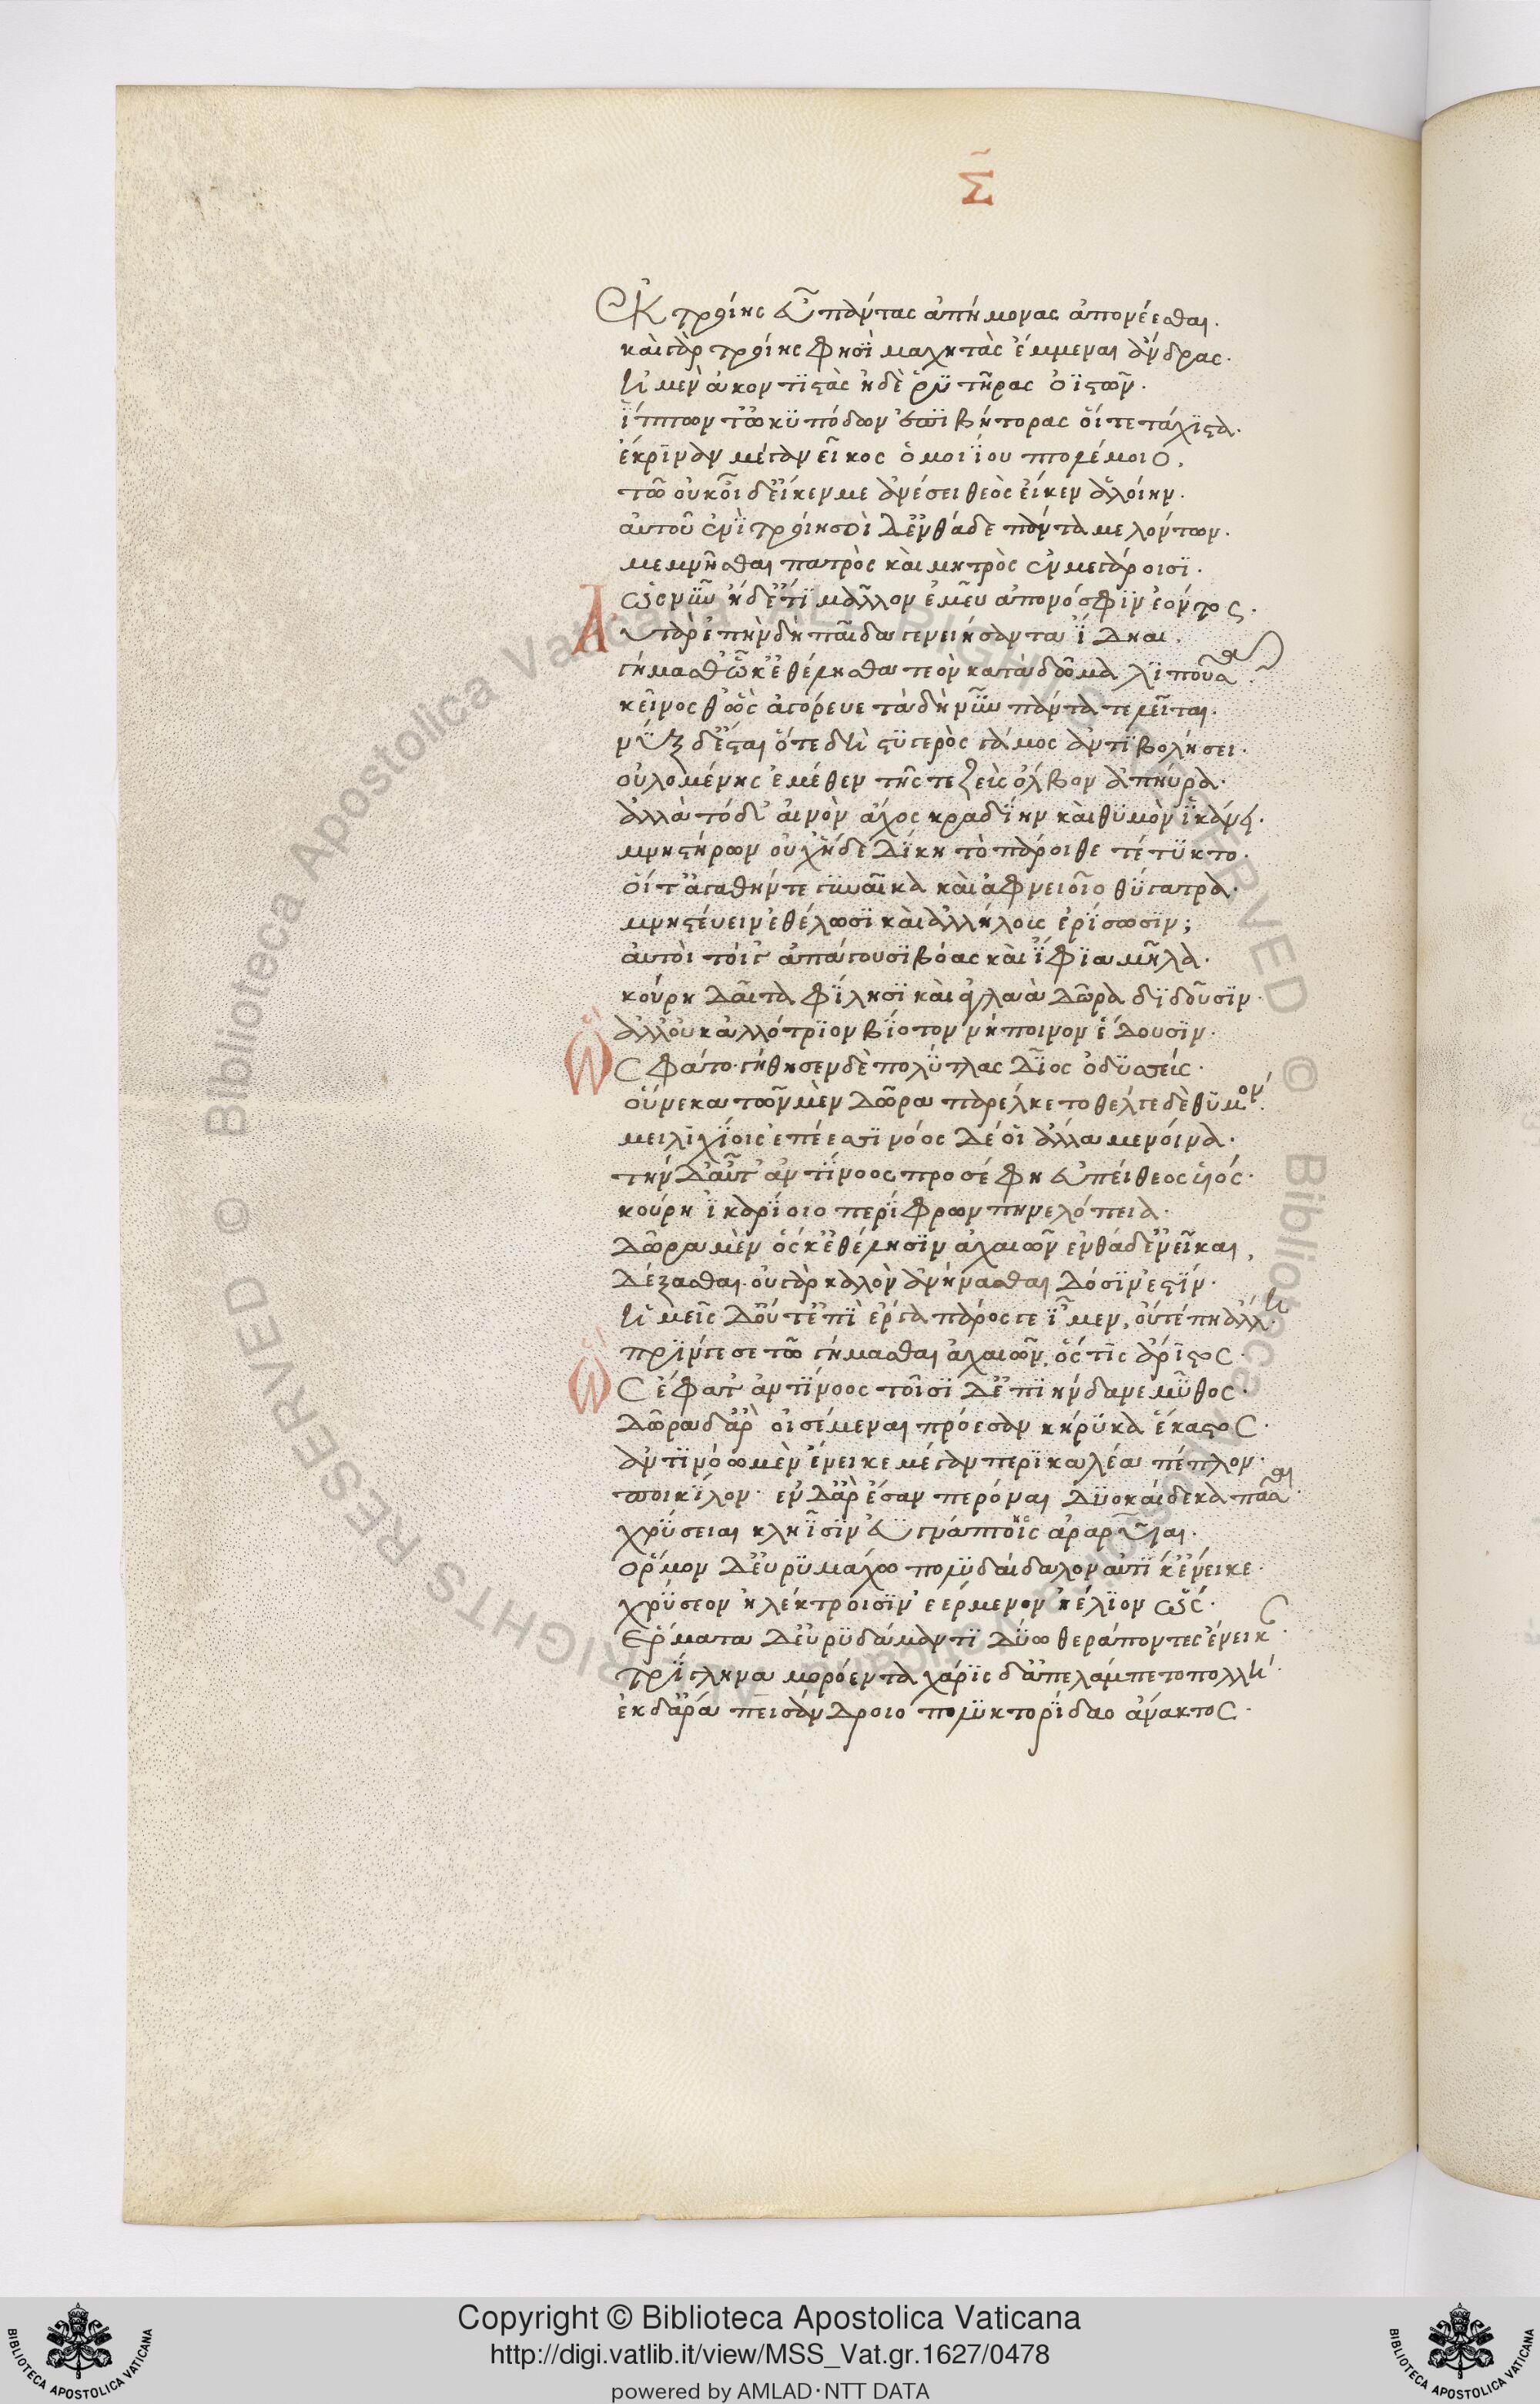 Σ
Ἐκ τροίης εὖ πάντας ἀπήμονας ἀπονέεσθαι.
καὶ γὰρ τροίης φησὶ μαχητὰς ἔμμεναι ἄνδρας.
ἠ μὲν ἀκοντιστὰς ἠδὲ ῥυτῆρας ὀϊστῶν.
ἵππων τ' ὠκυπόδων ἐπιβήτορας οἵ τε τάχιστα.
ἔκριναν μέγαν εἶκος ὁμοιΐου πτολέμοιο.
τῶ οὐκ οἶδ' εἴ κεν μ' ἀνέσει θεὸς εἴ κεν ἁλοίην.
αὐτοῦ ἐνὶ τροίη σοὶ δ' ἐνθάδε πάντα μελόντων.
μεμνῆσθαι πατρὸς καὶ μητρὸς ἐν μεγάροισι.
ὡς νῦν ἠδ' ἔτι μᾶλλον ἐμεῦ ἀπονόσφιν ἐόντος.
Αὐτὰρ ἐπὴν δὴ παῖδα γενειήσαντα ἴδηαι.
γήμασθ' ὧ κ' ἐθέλησθα τεὸν κατὰ δῶμα λιποῦσα.
κεῖνος θ' ὣς ἀγόρευε τὰ δὴ νῦν πάντα τελεῖται.
νὺξ δ' ἔσται ὅτε δὴ στυγερὸς γάμος ἀντιβολήσει.
οὐλομένης ἐμέθεν τῆς τε ζεὺς ὄλβον ἀπηύρα.
ἀλλὰ τόδ' αἰνὸν ἄχος κραδίην καὶ θυμὸν ἱκάνει.
μνηστήρων οὐχ' ἥδε δίκη τὸ πάροιθε τέτυκτο.
οἵ τ' ἀγαθήν τε γυναῖκα καὶ ἀφνειοῖο θύγατρα.
μνηστεύειν ἐθέλωσι καὶ ἀλλήλοις ἐρίσωσιν;
αὐτοὶ τοίγ' ἀπάγουσι βόας καὶ ἴφια μῆλα.
κούρη δαῖτα φίλησι καὶ ἀγλαὰ δῶρα διδοῦσιν.
ἀλλ' οὐκ ἀλλότριον βίοτον νήποινον ἔδουσιν.
Ὣς φάτο. γήθησεν δὲ πολύτλας δῖος ὀδυσσεύς.
οὕνεκα τῶν μὲν δῶρα παρέλκετο θέλγε δὲ θυμὸν.
μειλιχίοις ἐπέεσσι νόος δέ οἱ ἄλλα μενοίνα.
τὴν δ' αὖτ' ἀντίνοος προσέφη εὐπείθεος υἱός.
κούρη ἰκαρίοιο περίφρων πηνελόπεια.
δῶρα μὲν ὅς κ' ἐθέλησιν ἀχαιῶν ἐνθάδ' ἐνεῖκαι,
δέξασθαι. οὐ γὰρ καλὸν ἀνήνασθαι δόσιν ἐστίν.
ἡμεῖς δ' οὔτ' ἐπὶ ἔργα πάρος γε ἴμεν, οὔτέ πη ἄλλη.
πρίν γε σε τῶ γήμασθαι ἀχαιῶν, ὅς τις ἄριστος.
Ὣς ἔφατ' ἀντίνοος τοῖσι δ' ἐπιήνδανε μῦθος.
δῶρα δ' ἄρ' οἰσέμεναι πρόεσαν κήρυκα ἕκαστος.
ἀντινόω μὲν ἔνεικε μέγαν περικαλέα πέπλον.
ποικίλον. ἐν δ' ἄρ' ἔσαν περόναι δυοκαίδεκα πᾶσαι.
χρύσειαι κληῖσιν εὐγνάπτοις ἀραρυῖαι.
ὅρμον δ' εὐρυμάχω πολυδαίδαλον αὐτίκ' ἔνεικε.
χρύσεον ἠλέκτροισιν ἐερμένον ἠέλιον ὥς.
Ἕρματα δ' εὐρυδάμαντι δύω θεράποντες ἔνεικ
τρίγληνα μορόεντα χάρις δ' ἀπελάμπετο πολλή.
ἐκ δ' ἄρα πεισάνδροιο πολυκτορίδαο ἄνακτος.
Copyright © Biblioteca Apostolica Vaticana
http://digi.vatlib.it/view/MSS_Vat.gr.1627/0478
powered by AMLAD·NTT DATA